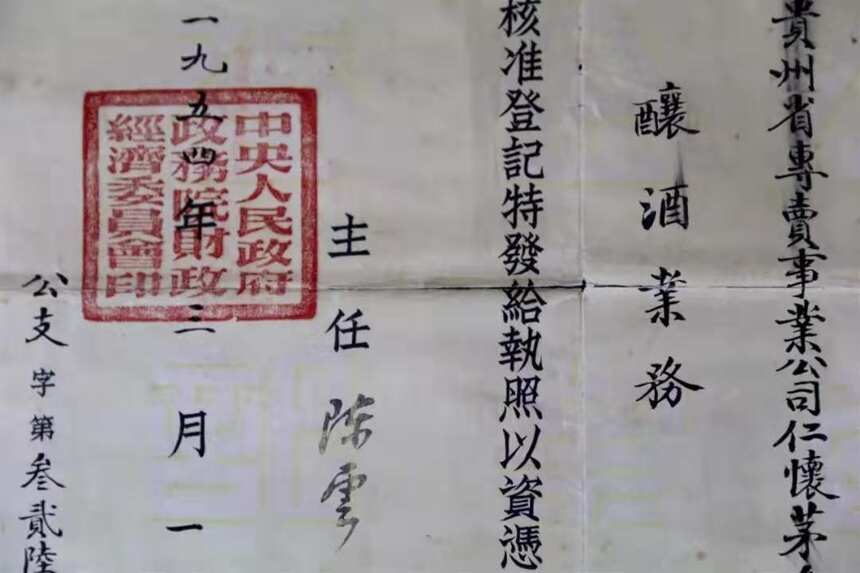 貴州省專賣事業公司仁懷茅
釀酒業務
核准登記特發給執照以資憑
主任 陈雲
中央人民政府
政務院財政
經濟委員會印
一九五四年三月一
公支字第叁貳陸